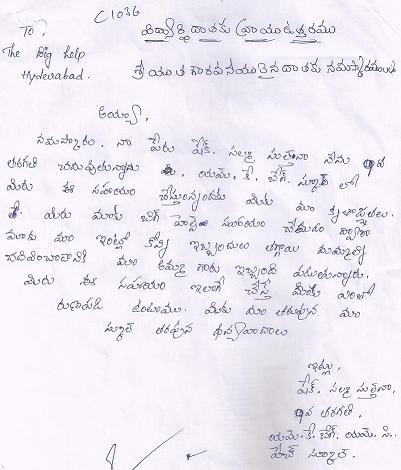 C1036
To,
The Big help
Hyderabad.
విద్యార్థి దాతకు వ్రాయు ఉత్తరము
శ్రీయుత గౌరవనీయులైన దాతకు నమస్కారములు
అయ్యా,
నమస్కారం. నా పేరు షేక్. సల్మా సుల్తానా నేను 9వ
తరగతి చదువుతున్నాను యమ్. కే. బేగ్. స్కూల్ లో
మీరు ఈ సహాయం చేస్తున్నందుకు మీకు మా కృతజ్ఞతలు.
మీరు మాకు బిగ్ హెల్ప్ సహాయం చేయడం ద్వారా
మాకు మా ఇంట్లో కొన్ని ఇబ్బందులు తగ్గాయి మమ్మల్ని
చదివించడానికి మా అమ్మ గారు ఇబ్బంది పడుతున్నారు.
మీరు ఈ సహాయం ఇలాగే చేస్తే మీకు ఎంతో
రుణపడి ఉంటాము. మీకు మా తరుపున మా
స్కూల్ తరపున ధన్యవాదాలు
ఇట్లు,
షేక్. సల్మా సుల్తానా,
9వ తరగతి,
యమ్. కే. బేగ్. యమ్. సి.
హైస్కూల్.